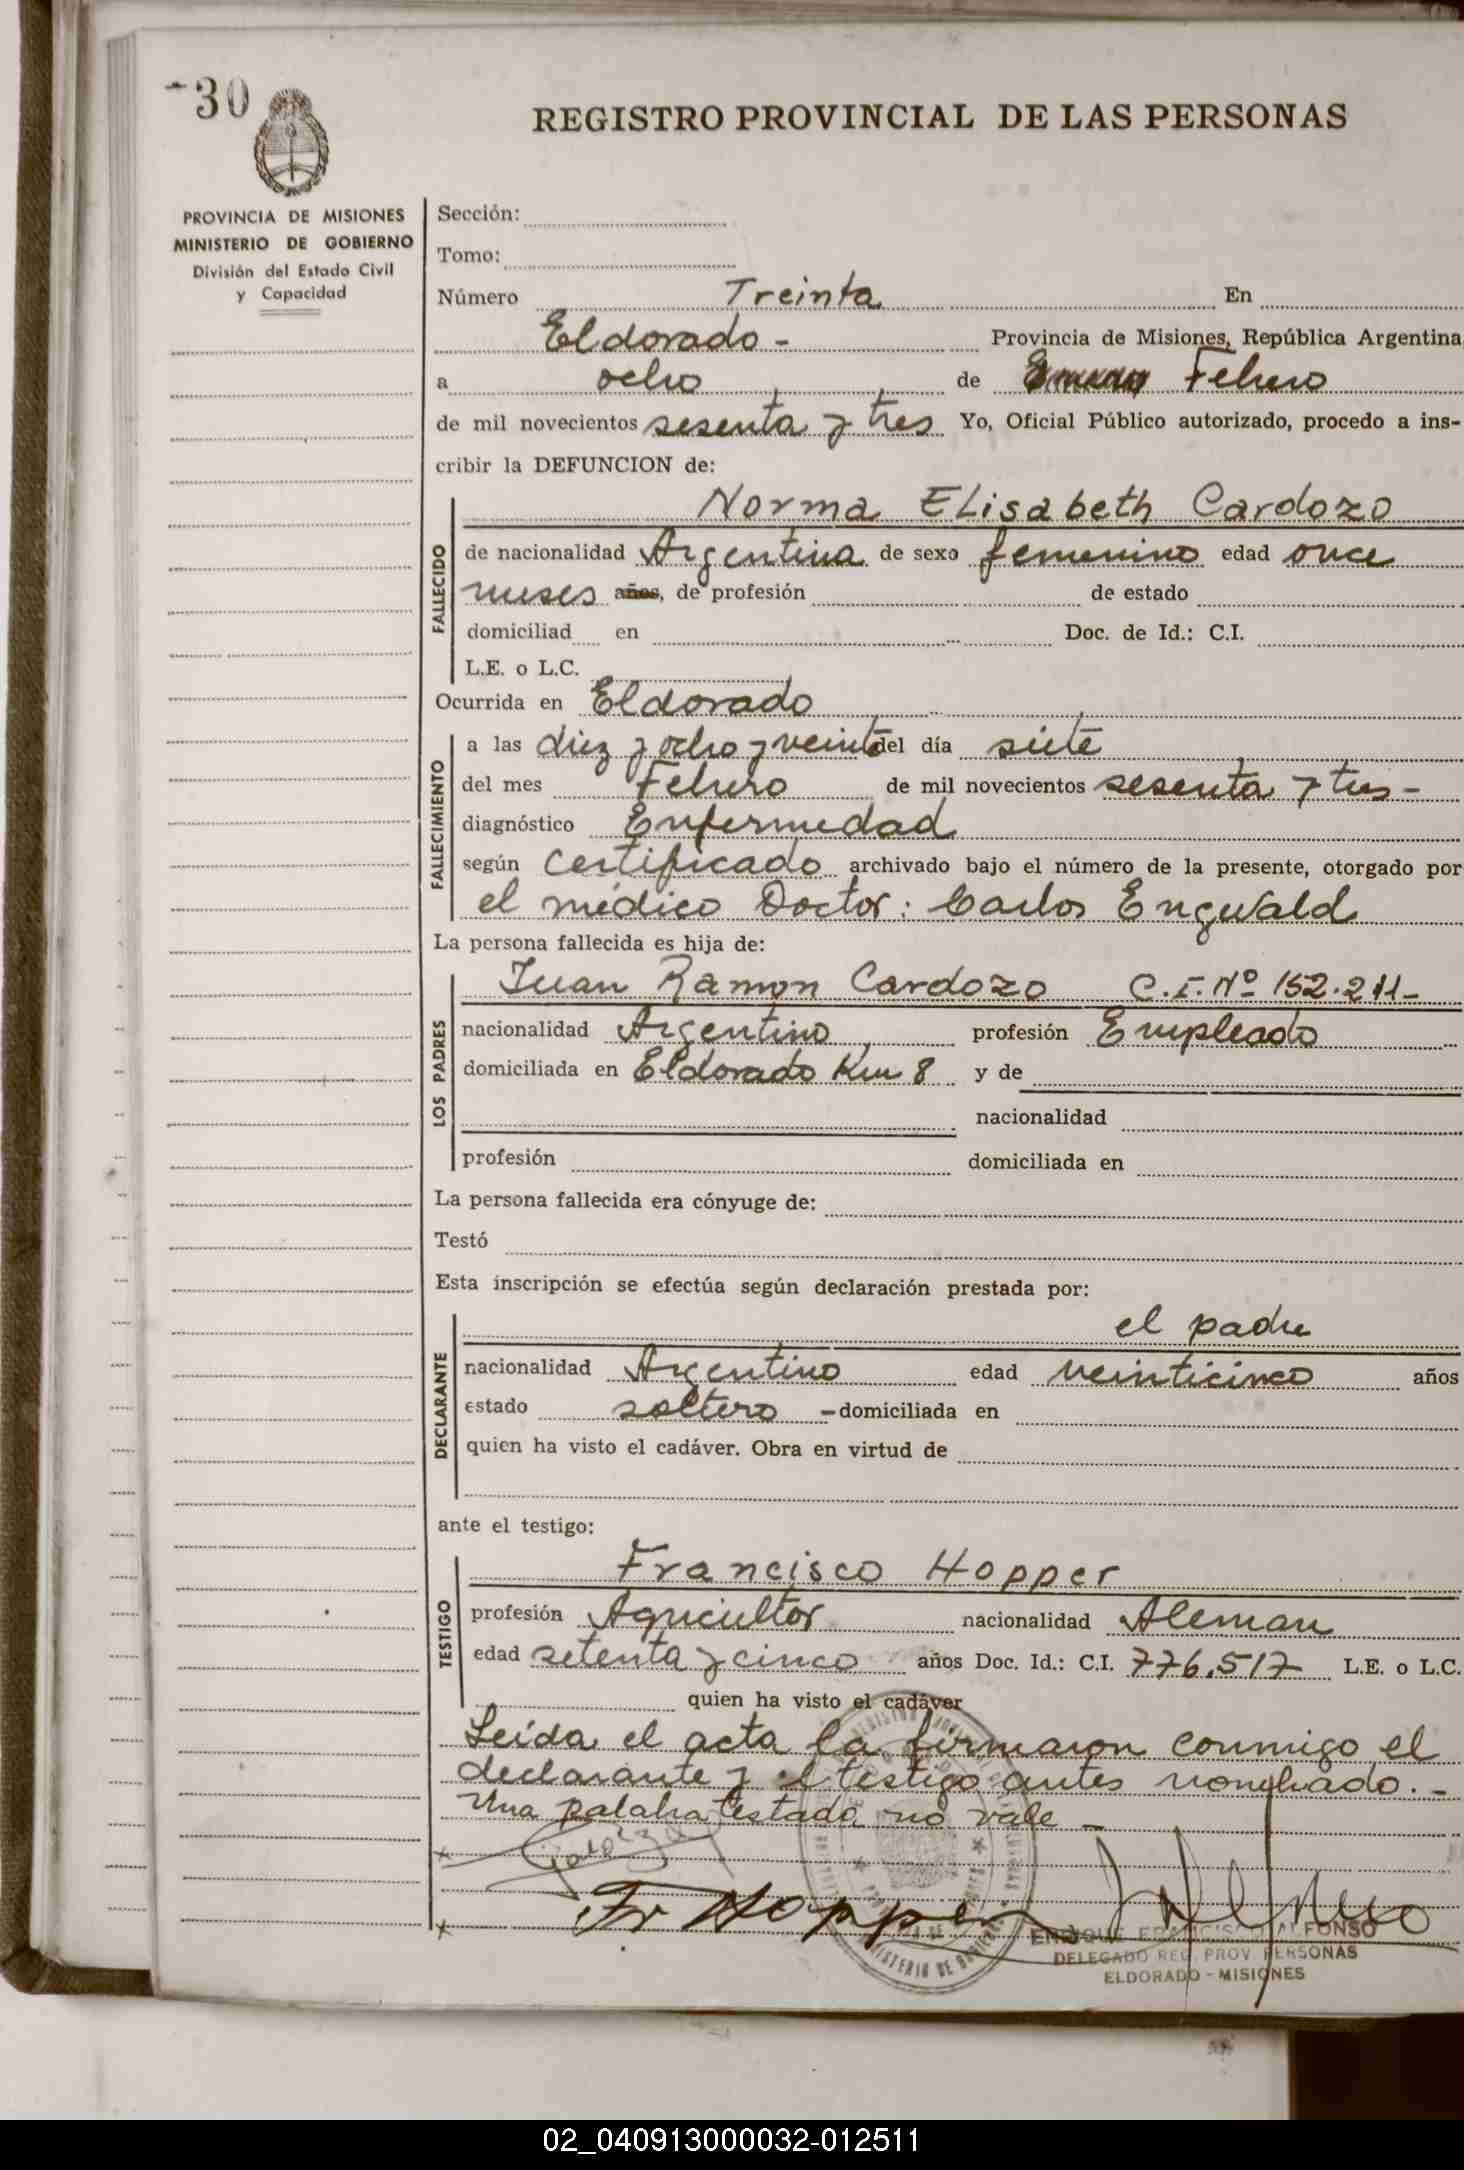 30
REGISTRO PROVINCIAL DE LAS PERSONAS
PROVINCIA DE MISIONES
MINISTERIO DE GOBIERNO
División del Estado Civil
y Capacidad
Sección:
Tomo:
Número Treinta En
Eldorado - Provincia de Misiones, República Argentina
a ocho de Febrero
de mil novecientos sesenta y tres Yo, Oficial Público autorizado, procedo a ins-
cribir la DEFUNCION de:
FALLECIDO
Norma ELisabeth Cardozo
de nacionalidad Argentina de sexo femenino edad once
meses años, de profesión de estado
domiciliad en Doc. de Id.: C.I.
L.E. o L.C.
Ocurrida en Eldorado
FALLECIMIENTO
a las diez y ocho y veinte del día siete
del mes Febrero de mil novecientos sesenta y tres -
diagnóstico Enfermedad
según certificado archivado bajo el número de la presente, otorgado por
el médico Doctor: Carlos Engwald
La persona fallecida es hija de:
LOS PADRES
Juan Ramon Cardozo C.I. Nº 152.211-
nacionalidad Argentino profesión Empleado
domiciliada en Eldorado Km 8 y de
nacionalidad
profesión domiciliada en
La persona fallecida era cónyuge de:
Testó
Esta inscripción se efectúa según declaración prestada por:
DECLARANTE
el padre
nacionalidad Argentino edad veinticinco años
estado soltero - domiciliada en
quien ha visto el cadáver. Obra en virtud de
ante el testigo:
TESTIGO
Francisco Hopper
profesión Agricultor nacionalidad Aleman
edad setenta y cinco años Doc. Id.: C.I. 776.517 L.E. o L.C.
quien ha visto el cadáver
Leida el acta la firmaron conmigo el
declarante y el testigo antes nombrado. -
Una palabra testada no vale -
Fr Hopper
ENRIQUE FRANCISCO ALFONSO
DELEGADO REG. PROV. PERSONAS
ELDORADO - MISIONES
02_040913000032-012511